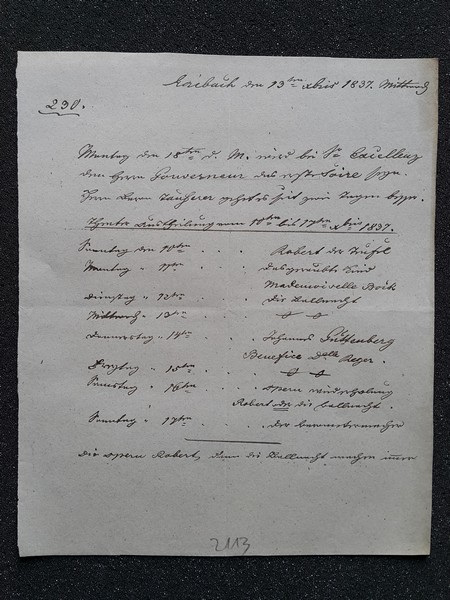 den 13ten xbris 1837. Mittwoch
230.
Montag den 18ten d. M. wird bei Sr Excellenz
dem Herrn Gouverneur das erste Soire seyn.
Herrn Baron geht es seit zwei Tagen besser.
Theater Austheilung vom 10ten bis 17ten xbris 1837.
Sonntag den 10ten . . . Robert der Teufel
Montag " 11ten . . . das geraubte Kind
Mademoiselle Bock
Dienstag " 12ten . . . die Ballnacht
Mittwoch " 13ten . . .
Donnerstag " 14ten . . . Johannes Guttenberg
Benefice Dlle Reger.
Freytag " 15ten . . .
Samstag " 16ten . . . Opern wiederholung
Robert oder die ballnacht.
Sonntag " 17ten . . . der
die Opern Robert, dann die Ballnacht machen immer
2113